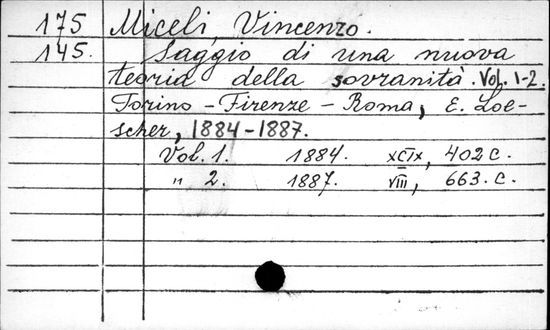 175 Miceli, Vincenzo.
145. Saggio di una nuova
teoria della sovranità. Vol. 1-2.
Torino - Firenze - Roma, E. Loe-
scher, 1884-1887.
Vol. 1. 1884. XCIX, 402 c.
" 2. 1887. VIII, 663. c.